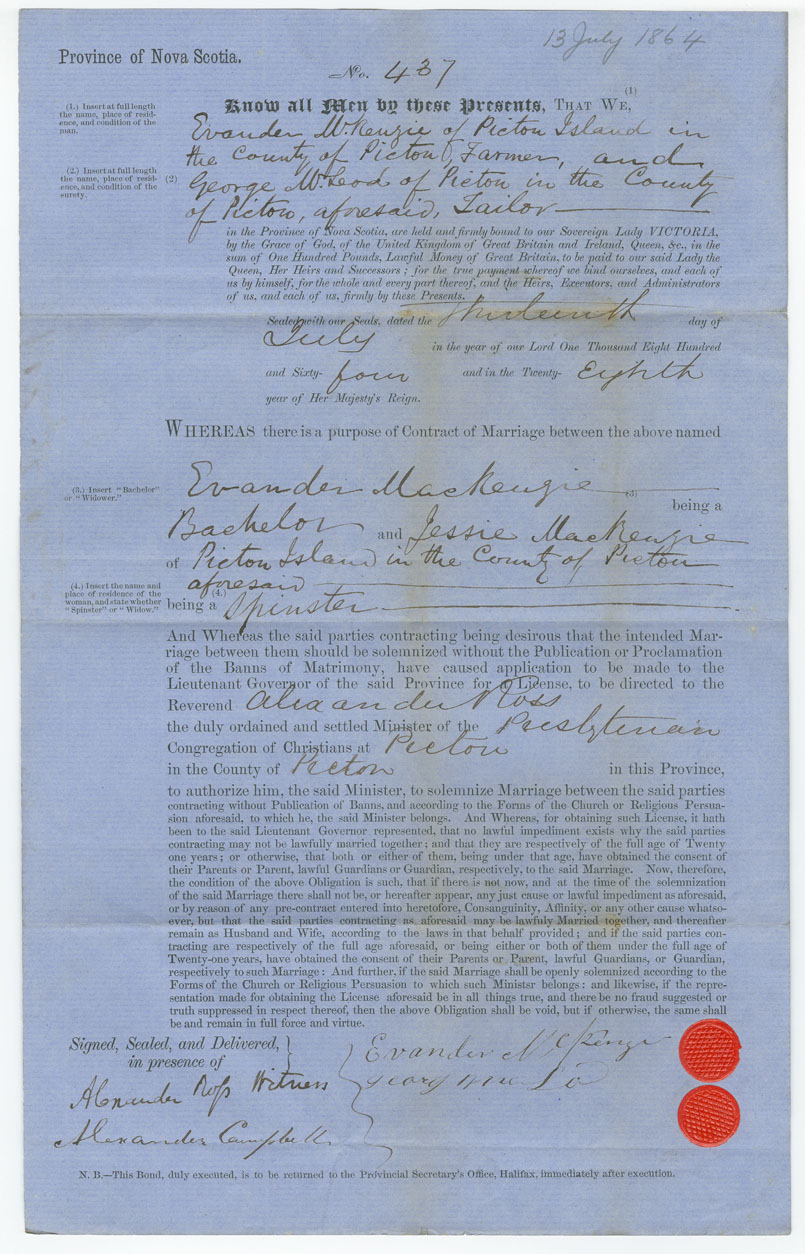 13 July 1864
Province of Nova Scotia.
No. 437
Know all Men by these Presents, THAT WE, (1)
(1.) Insert at full length
the name, place of resid-
ence, and condition of the
man.
Evander McKenzie of Picton Island in
the County of Picton, Farmer, and
(2.) Insert at full length
the name, place of resid-
ence, and condition of the
surety.
(2) George McLeod of Picton in the County
of Picton, aforesaid, Tailor
in the Province of Nova Scotia, are held and firmly bound to our Sovereign Lady VICTORIA,
by the Grace of God, of the United Kingdom of Great Britain and Ireland, Queen, &c., in the
sum of One Hundred Pounds, Lawful Money of Great Britain, to be paid to our said Lady the
Queen, Her Heirs and Successors; for the true payment whereof we bind ourselves, and each of
us by himself, for the whole and every part thereof, and the Heirs, Executors, and Administrators
of us, and each of us, firmly by these Presents.
Sealed with our Seals, dated the thirteenth day of
July in the year of our Lord One Thousand Eight Hundred
and Sixty- four and in the Twenty- Eighth
year of Her Majesty's Reign.
WHEREAS there is a purpose of Contract of Marriage between the above named
(3.) Insert "Bachelor"
or "Widower."
Evander MacKenzie (3) being a
Bachelor and Jessie MacKenzie
of Picton Island in the County of Picton
aforesaid
(4.) Insert the name and
place of residence of the
woman, and state whether
"Spinster" or "Widow."
being a (4.) Spinster
And Whereas the said parties contracting being desirous that the intended Mar-
riage between them should be solemnized without the Publication or Proclamation
of the Banns of Matrimony, have caused application to be made to the
Lieutenant Governor of the said Province for a License, to be directed to the
Reverend Alexander Ross
the duly ordained and settled Minister of the Presbyterian
Congregation of Christians at Picton
in the County of Picton in this Province,
to authorize him, the said Minister, to solemnize Marriage between the said parties
contracting without Publication of Banns, and according to the Forms of the Church or Religious Persua-
sion aforesaid, to which he, the said Minister belongs. And Whereas, for obtaining such License, it hath
been to the said Lieutenant Governor represented, that no lawful impediment exists why the said parties
contracting may not be lawfully married together; and that they are respectively of the full age of Twenty
one years; or otherwise, that both or either of them, being under that age, have obtained the consent of
their Parents or Parent, lawful Guardians or Guardian, respectively, to the said Marriage. Now, therefore,
the condition of the above Obligation is such, that if there is not now, and at the time of the solemnization
of the said Marriage there shall not be, or hereafter appear, any just cause or lawful impediment as aforesaid,
or by reason of any pre-contract entered into heretofore, Consanguinity, Affinity, or any other cause whatso-
ever, but that the said parties contracting as aforesaid may be lawfuly Married together, and thereafter
remain as Husband and Wife, according to the laws in that behalf provided; and if the said parties con-
tracting are respectively of the full age aforesaid, or being either or both of them under the full age of
Twenty-one years, have obtained the consent of their Parents or Parent, lawful Guardians, or Guardian,
respectively to such Marriage: And further, if the said Marriage shall be openly solemnized according to the
Forms of the Church or Religious Persuasion to which such Ministsr belongs: and likewise, if the repre-
sentation made for obtaining the License aforesaid be in all things true, and there be no fraud suggested or
truth suppressed in respect thereof, then the above Obligation shall be void, but if otherwise, the same shall
be and remain in full force and virtue.
Signed, Sealed, and Delivered,
in presence of
Evander McKenzie
Alexander Ross Witness
Alexander Campbell
N. B.—This Bond, duly executed, is to be returned to the Provincial Secretary's Office, Halifax, immediately after execution.